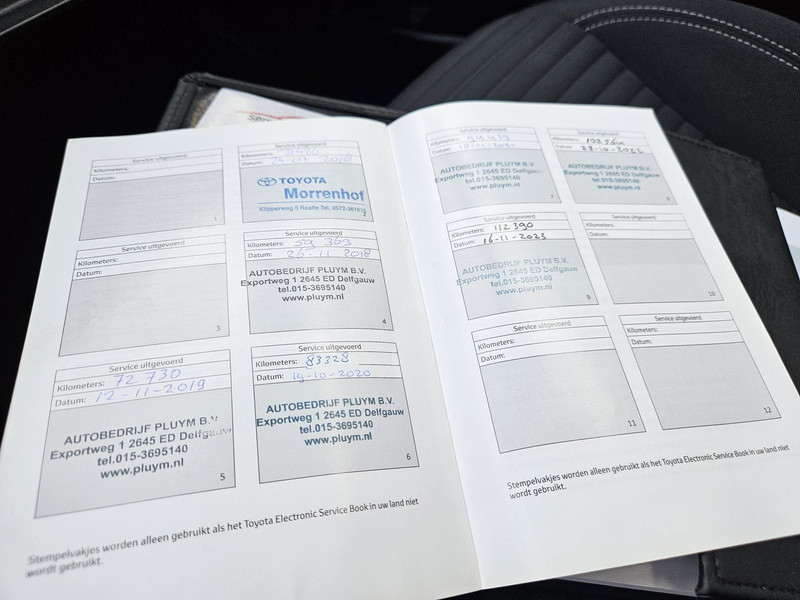 Service uitgevoerd
Kilometers:
Datum:
1
Service uitgevoerd
Kilometers:
Datum:
TOYOTA
Morrenhof
Klipperweg 5 Raalte Tel. 0572-361615
Service uitgevoerd
Kilometers:
Datum:
3
Service uitgevoerd
Kilometers: 59 303
Datum: 26-11 2018
AUTOBEDRIJF PLUYM B.V.
Exportweg 1 2645 ED Delfgauw
tel.015-3695140
www.pluym.nl
4
Service uitgevoerd
Kilometers: 72 730
Datum: 12-11-2019
AUTOBEDRIJF PLUYM B.V.
Exportweg 1 2645 ED Delfgauw
tel.015-3695140
www.pluym.nl
5
Service uitgevoerd
Kilometers: 83328
Datum: 19-10-2020
AUTOBEDRIJF PLUYM B.V.
Exportweg 1 2645 ED Delfgauw
tel.015-3695140
www.pluym.nl
6
Stempelvakjes worden alleen gebruikt als het Toyota Electronic Service Book in uw land niet
wordt gebruikt.
Service uitgevoerd
Kilometers:
Datum:
AUTOBEDRIJF PLUYM B.V.
Exportweg 1 2645 ED Delfgauw
tel.015-3695140
www.pluym.nl
7
Service uitgevoerd
Kilometers:
Datum: 23-11-2022
AUTOBEDRIJF PLUYM B.V.
Exportweg 1 2645 ED Delfgauw
tel.015-3695140
www.pluym.nl
8
Service uitgevoerd
Kilometers: 112390
Datum: 16-11-2023
AUTOBEDRIJF PLUYM B.V.
Exportweg 1 2645 ED Delfgauw
tel.015-3695140
www.pluym.nl
9
Service uitgevoerd
Kilometers:
Datum:
10
Service uitgevoerd
Kilometers:
Datum:
11
Service uitgevoerd
Kilometers:
Datum:
12
Stempelvakjes worden alleen gebruikt als het Toyota Electronic Service Book in uw land niet
wordt gebruikt.